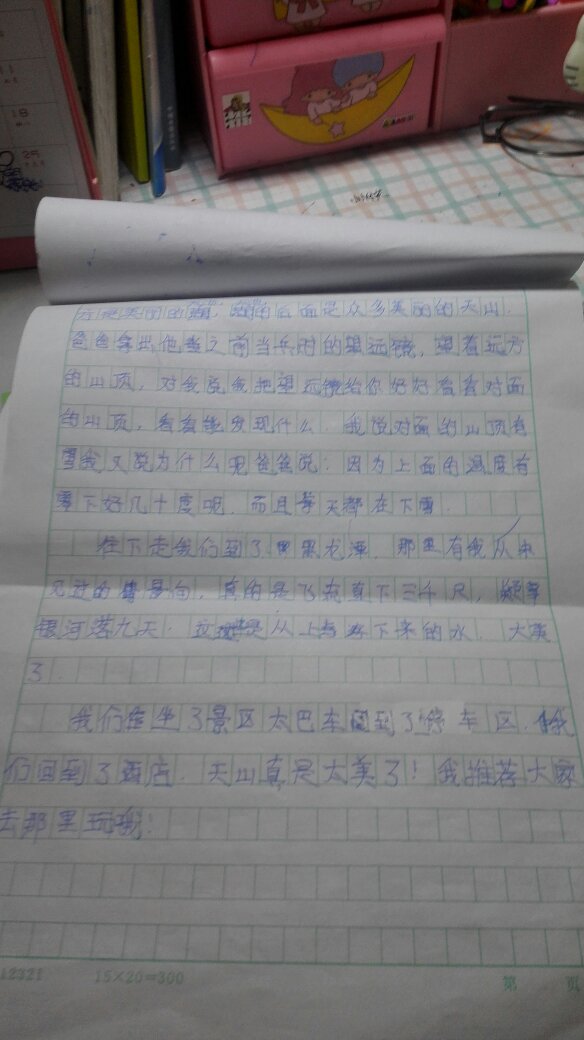 方是美丽的湖，湖的后面是众多美丽的天山．
爸爸拿出他当之前当兵时的望远镜，望着远方
的山顶，对我说我把望远镜给你好好看看对面
的山顶，看看能发现什么．我说对面的山顶有
雪我又说为什么呢爸爸说：因为上面的温度有
零下好几十度呢．而且每天都在下雪．
往下走我们到了黑龙潭．那里有我从未
见过的景象，真的是飞流直下三千尺，疑是
银河落九天．这是从上下来的水．太美
了．
我们坐了景区大巴车回到了停车区．我
们回到了酒店．天山真是太美了！我推荐大家
去那里玩哦！
12321 15×20=300 第 页
18
25